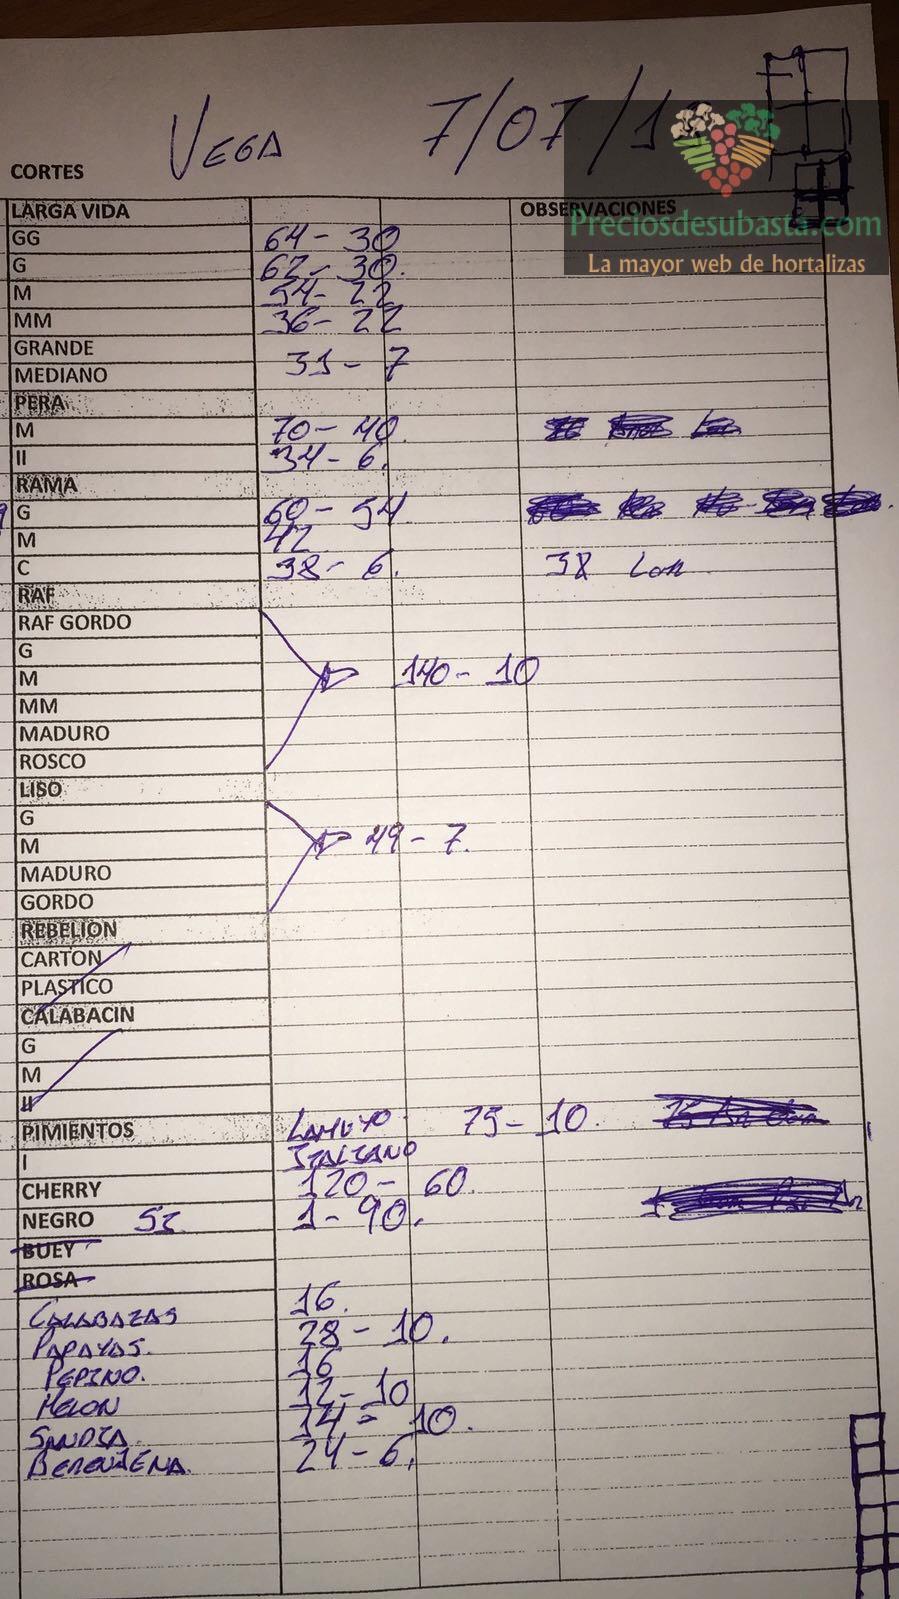 VEGA 7/07/1
CORTES
Preciosdesubasta.com
La mayor web de hortalizas
LARGA VIDA OBSERVACIONES
GG 64 - 30
G 62 - 30.
M 54 - 22
MM 36 - 22
GRANDE
MEDIANO 31 - 7
PERA
M 70 - 40.
II 34 - 6.
RAMA
G 60 - 54
M 42
C 38 - 6. 38 Lon
RAF
RAF GORDO
G
M 140 - 10
MM
MADURO
ROSCO
LISO
G
M 49 - 7.
MADURO
GORDO
REBELION
CARTON
PLASTICO
CALABACIN
G
M
II
PIMIENTOS LAMUYO 75 - 10.
I ITALIANO
CHERRY 120 - 60.
NEGRO SI 1 - 90.
BUEY
ROSA
CALABAZAS 16.
PAPAYAS. 28 - 10.
PEPINO. 16
MELON 12 - 10
SANDIA. 14 - 10.
BERENJENA. 24 - 6.